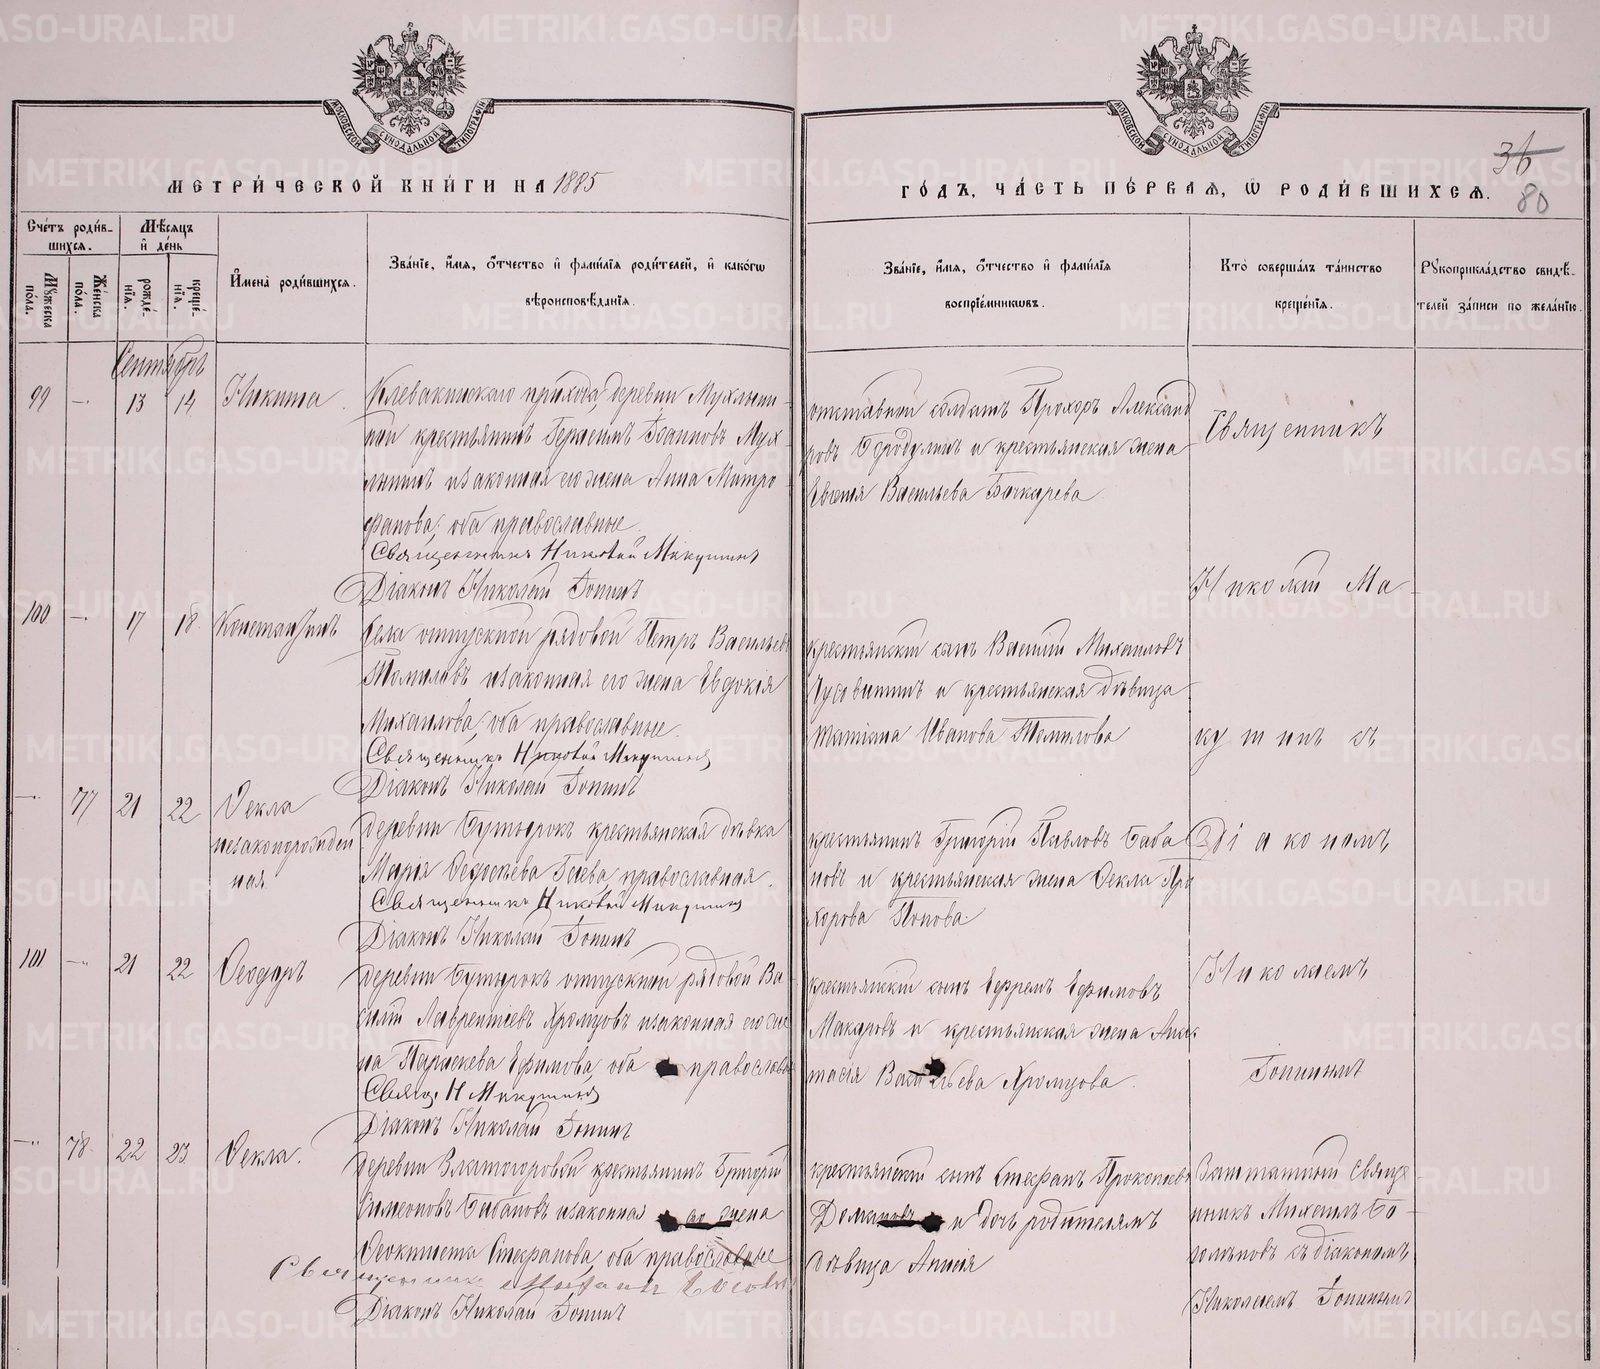 МОСКОВСКОЙ СѴНОДАЛЬНОЙ ТИПОГРАФІИ
МОСКОВСКОЙ СѴНОДАЛЬНОЙ ТИПОГРАФІИ
МЕТРИ́ЧЕСКОЙ КНИ́ГИ НА 1885
ГО́ДЪ, ЧА́СТЬ ПЕ́РВАЯ, Ѡ РОДИ́ВШИХСЯ.
36
80
Сче́тъ роди́в-
шихся.
Мꙋжеска по́ла.
Же́нска по́ла.
Мѣ́сяцъ и де́нь
рожде́-
нїя.
креще́-
нїя.
И҆мена̀ роди́вшихся.
Зва́нїе, и҆́мя, ѻ҆́тчество и҆ фами́лїя роди́телей, и҆ како́гѡ
вѣроисповѣ́данїя.
Зва́нїе, и҆́мя, ѻ҆́тчество и҆ фами́лїя
воспрїе́мникѡвъ.
Кто̀ соверша́лъ та́инство
креще́нїя.
Рꙋкоприкла́дство свидѣ́-
телей за́писи по жела́нїю.
Сентябрь
99 — 13 14 Никита.
Клевакинскаго прихода, деревни Мухлыни-
ной крестьянинъ Герасимъ Іоанновъ Мух-
лынинъ и законная его жена Анна Митро-
фанова, оба православные.
Священникъ Николай Микушинъ
Діаконъ Николай Іонинъ
отставной солдатъ Прохоръ Александ
ровъ Бородулинъ и крестьянская жена
Евгенія Васильева Бочкарева
Священникъ
Николай Ма-
100 — 17 18 Константинъ
Села отпускной рядовой Петръ Васильевъ
Томиловъ и законная его жена Евдокія
Михаилова, оба православные.
Священникъ Николай Микушинъ
Діаконъ Николай Іонинъ
крестьянскій сынъ Василій Михаиловъ
и крестьянская дѣвица
Татіана Иванова Томилова
кушинъ съ
— 77 21 22 Ѳекла
незаконорожден
ная
деревни Бутырокъ крестьянская дѣвка
Марія Ѳедосѣева православная.
Священникъ Николай Микушинъ
Діаконъ Николай Іонинъ
крестьянинъ Григорій Павловъ Баба
новъ и крестьянская жена Ѳекла Про
хорова Попова.
Діакономъ
101 — 21 22 Ѳеодоръ
деревни Бутырокъ отпускной рядовой Ва-
силій Лаврентіевъ Хромцовъ и законная его же
на Параскева Ефимова, оба православны
Свящ. Н Микушинъ
Діаконъ Николай Іонинъ
крестьянскій сынъ Ефремъ Ефимовъ
Макаровъ и крестьянская жена Анас
тасія Васильева Хромцова.
Николаемъ
Іонинымъ
— 78. 22 23 Ѳекла.
деревни Златогоровой крестьянинъ Григорій
Симеоновъ Бабановъ и законная его жена
Ѳеоктиста Стефанова, оба православные
Священникъ
Діаконъ Николай Іонинъ
крестьянскій сынъ Стефанъ Прокопьевъ
и дочь родителямъ
дѣвица
Заштатный Свящ
нникъ Михаилъ Бо-
голѣповъ съ діакономъ
Николаемъ Іонинымъ
METRIKI.GASO-URAL.RU